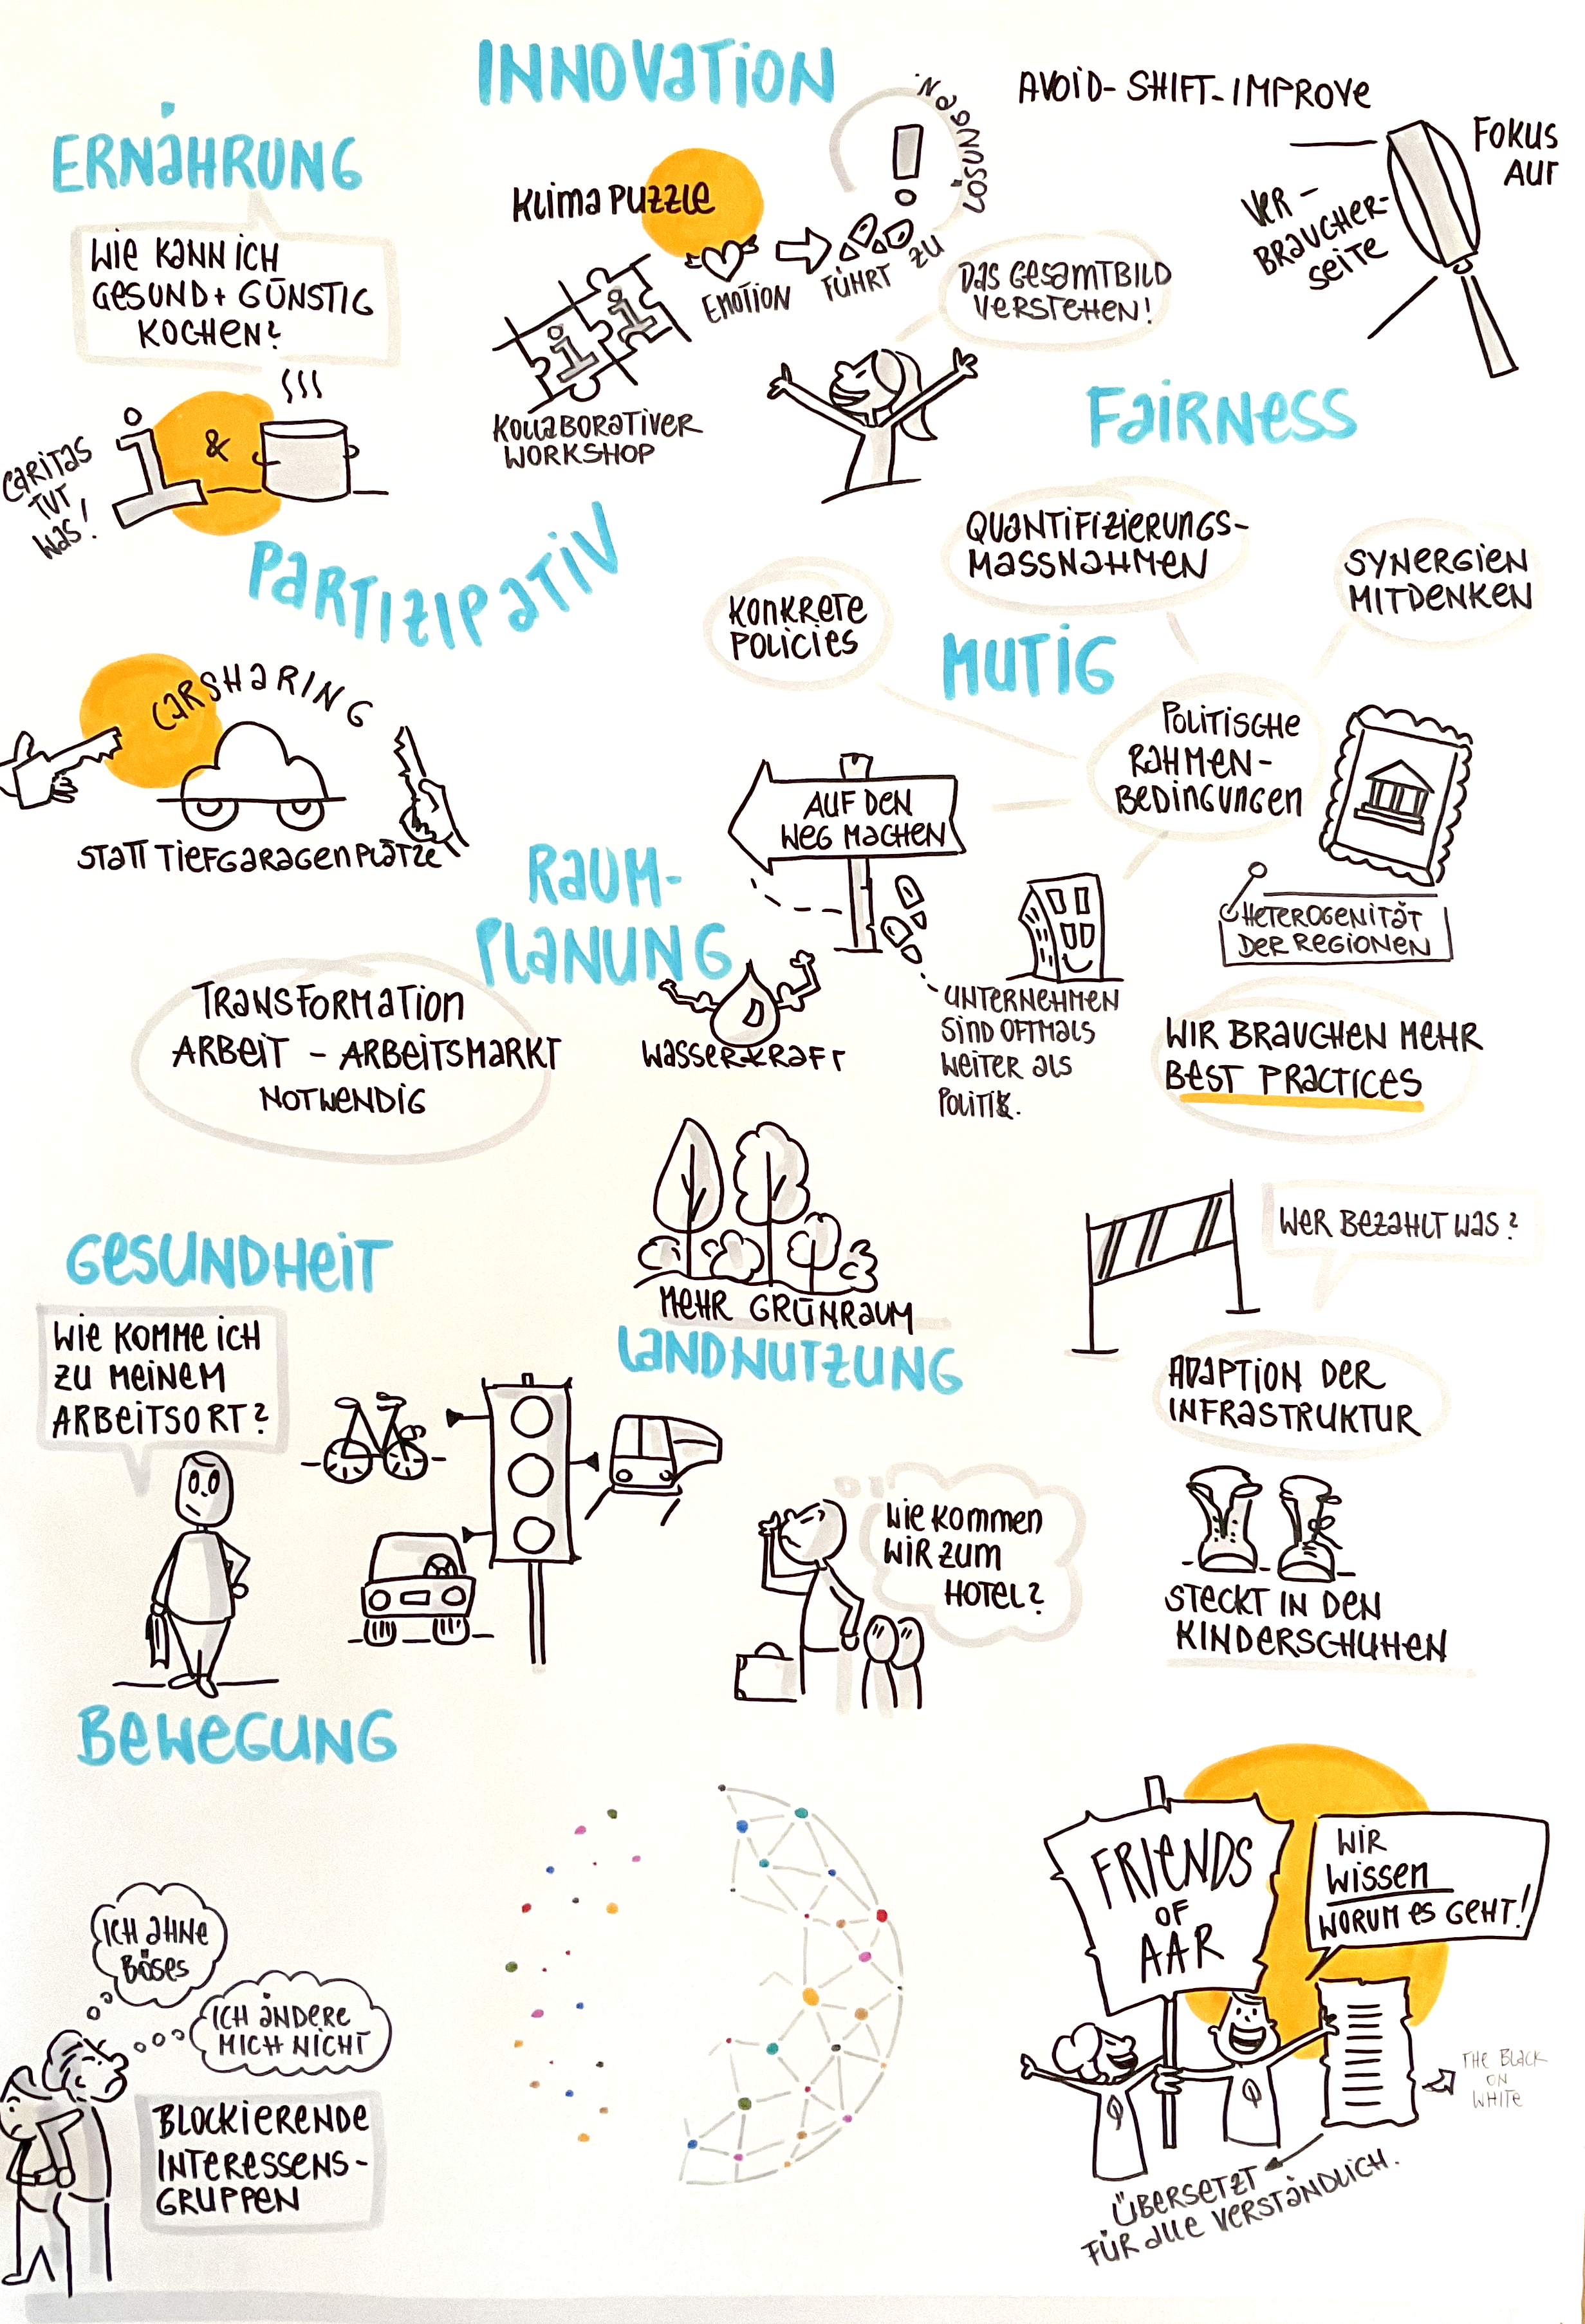 INNOVATION
AVOID-SHIFT-IMPROVE
FOKUS
AUF
VER-
BRAUCHER-
SEITE
ERNÄHRUNG
WIE KANN ICH
GESUND + GÜNSTIG
KOCHEN?
&
CARITAS
TUT
WAS!
KLIMAPUZZLE
EMOTION
FÜHRT ZU
LÖSUNGEN
KOLLABORATIVER
WORKSHOP
DAS GESAMTBILD
VERSTEHEN!
FAIRNESS
PARTIZIPATIV
QUANTIFIZIERUNGS-
MASSNAHMEN
SYNERGIEN
MITDENKEN
KONKRETE
POLICIES
MUTIG
POLITISCHE
RAHMEN-
BEDINGUNGEN
CARSHARING
STATT TIEFGARAGENPLÄTZE
AUF DEN
WEG MACHEN
HETEROGENITÄT
DER REGIONEN
RAUM-
PLANUNG
WASSERKRAFT
UNTERNEHMEN
SIND OFTMALS
WEITER ALS
POLITIK.
TRANSFORMATION
ARBEIT - ARBEITSMARKT
NOTWENDIG
WIR BRAUCHEN MEHR
BEST PRACTICES
WER BEZAHLT WAS?
MEHR GRÜNRAUM
LANDNUTZUNG
GESUNDHEIT
WIE KOMME ICH
ZU MEINEM
ARBEITSORT?
ADAPTION DER
INFRASTRUKTUR
WIE KOMMEN
WIR ZUM
HOTEL?
STECKT IN DEN
KINDERSCHUHEN
BEWEGUNG
ICH AHNE
BÖSES
ICH ÄNDERE
MICH NICHT
BLOCKIERENDE
INTERESSENS-
GRUPPEN
FRIENDS
OF
AAR
WIR
WISSEN
WORUM ES GEHT!
THE BLACK
ON
WHITE
ÜBERSETZT
FÜR ALLE VERSTÄNDLICH.